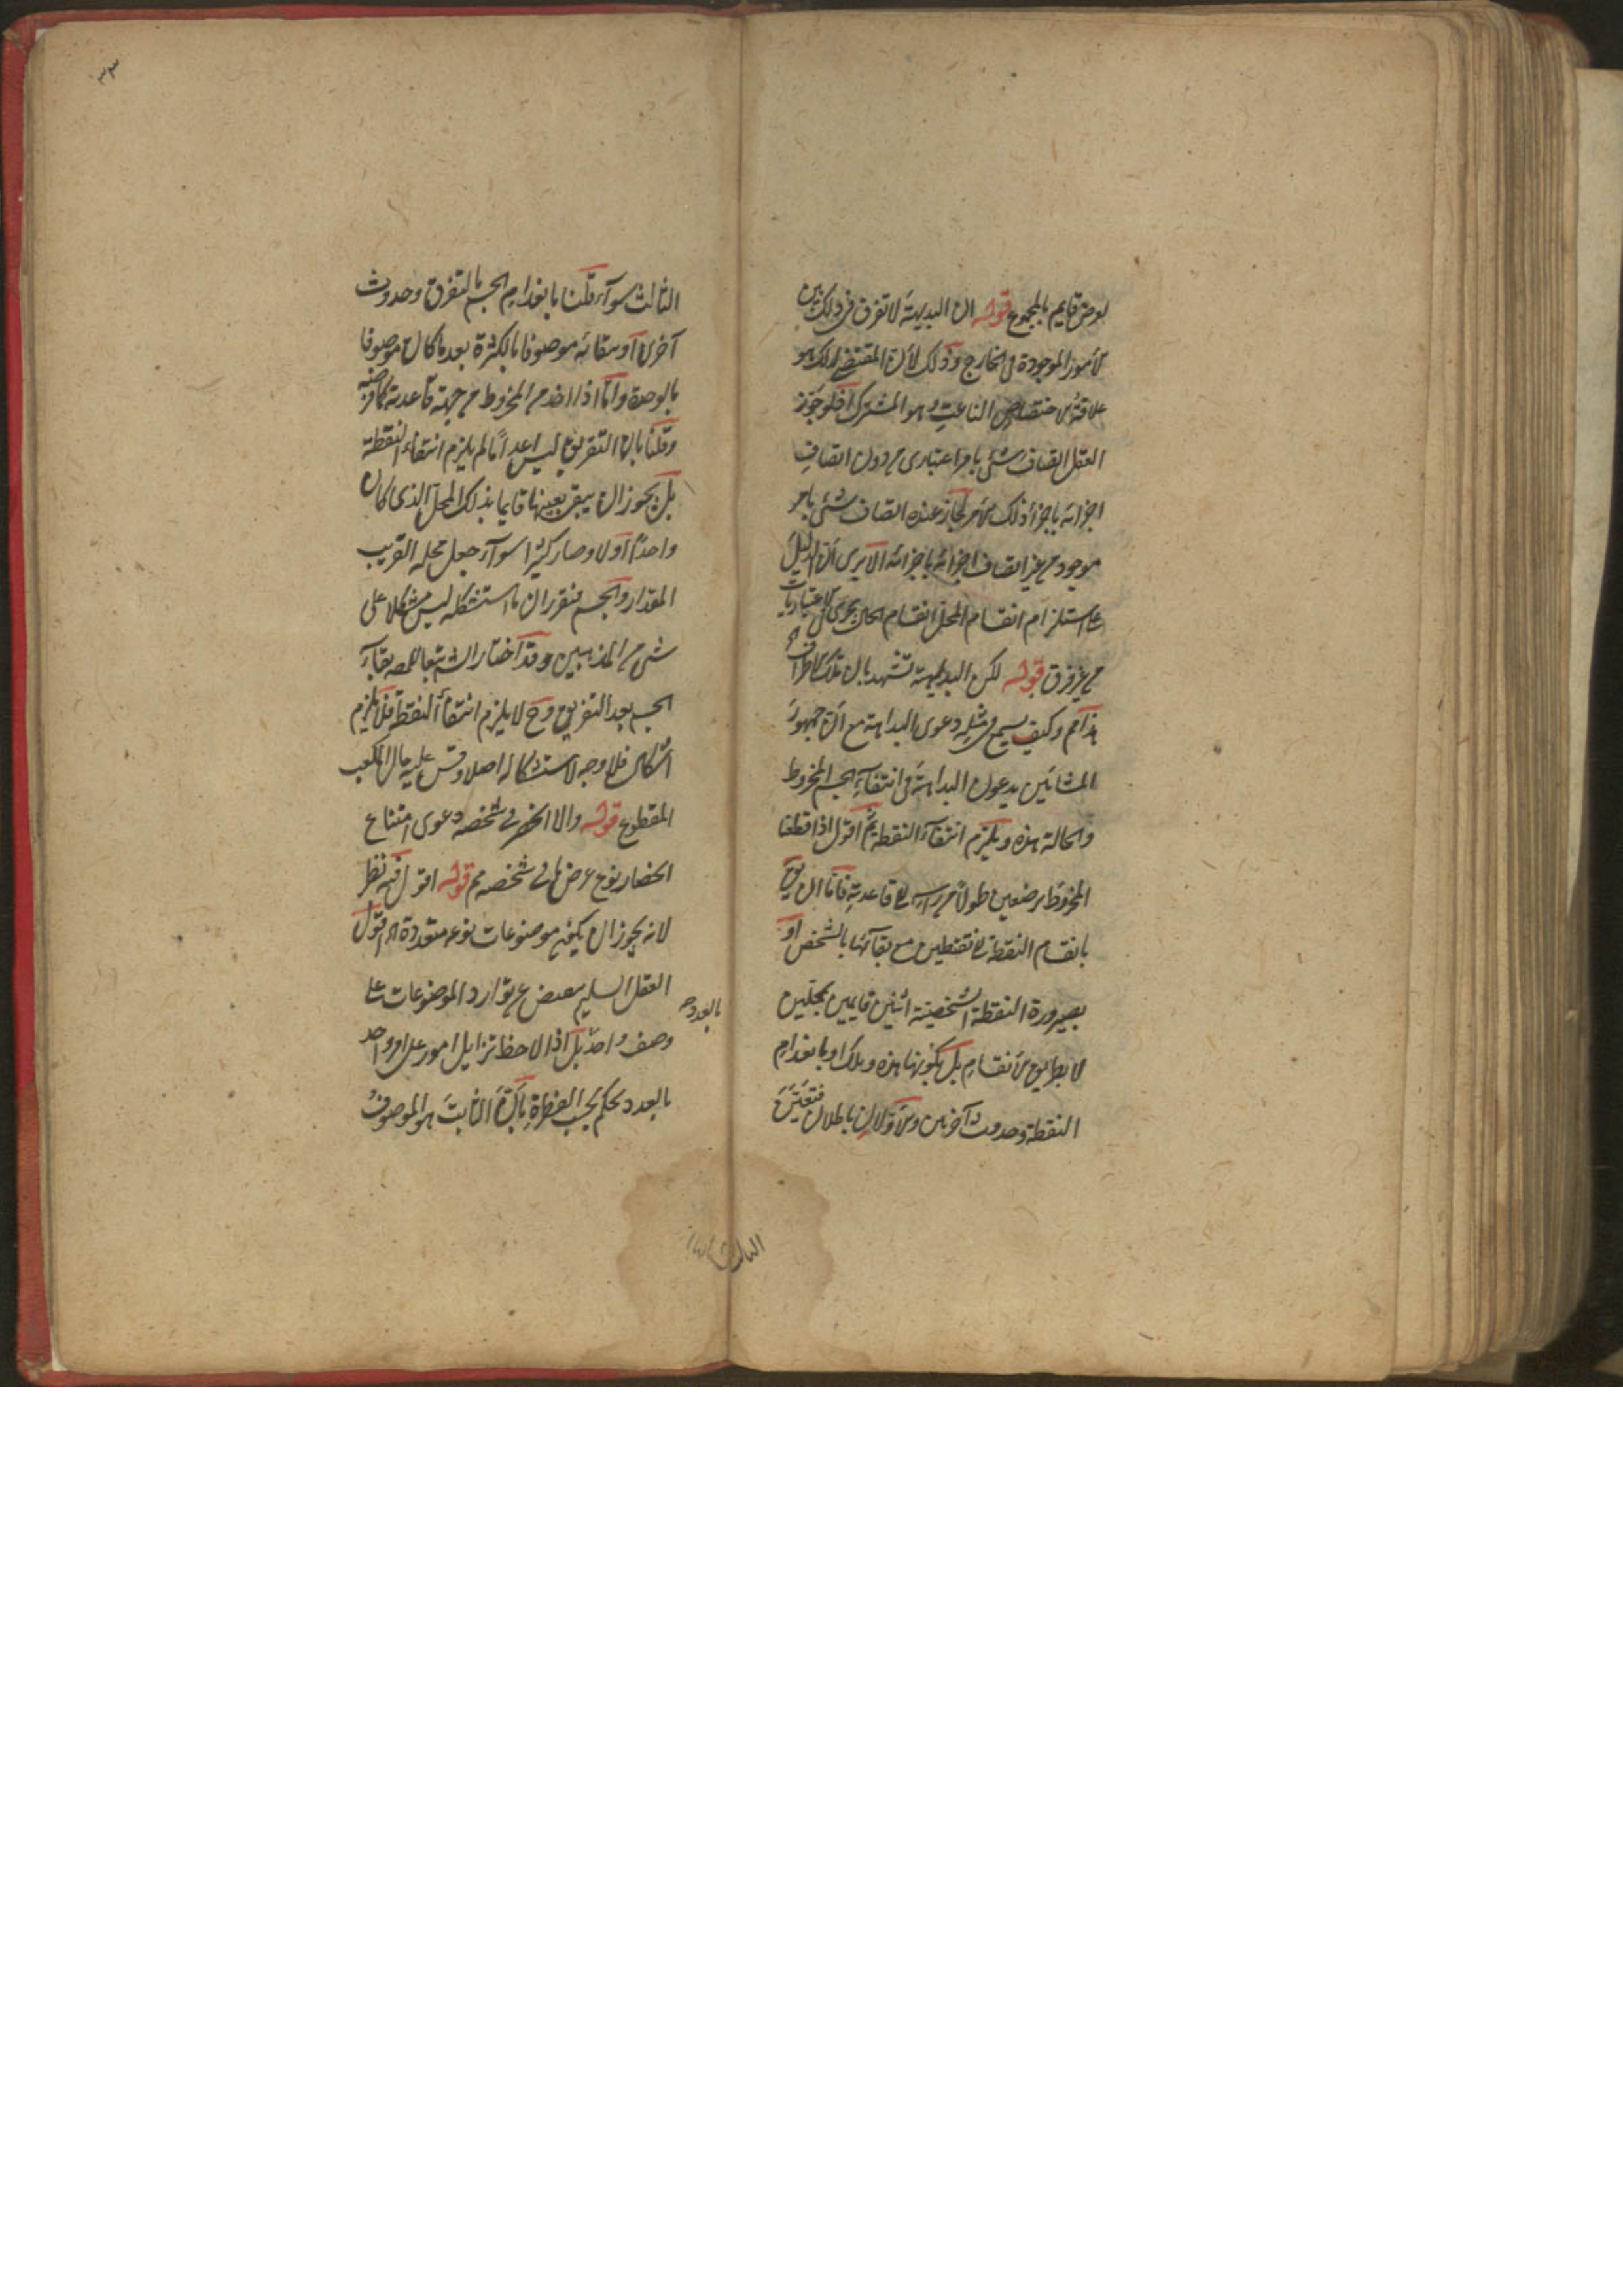 لعرض قايم بالمجموع قوله ان البديهة لا تفرق في ذلك بين
الأمور الموجودة في الخارج وذلك لأن المقتضى لذلك هو
علاقة الاختصاص الناعت وهو المشترك فلو جوز
العقل اتصاف شئ بامر اعتباري من دون اتصاف
اجزائه باجزاء ذلك الأمر لجاز عنده اتصاف شئ بامر
موجود من غير اتصاف اجزائه باجزائه الا يرى أن الدليل
على استلزام انقسام المحل انقسام الحال يجري في الاعتباريات
من غير فرق قوله لكن البديهة تشهد بان تلك الاطراف
هذا مم وكيف يسمع في مثله دعوى البداهة مع أن جمهور
المشائين يدعون البداهة في انتفاء الجسم المخروط
والحالة هذه ويلزم انتفاء النقطة ثم اقول اذا قطعنا
المخروط بنصفين طولا من راسه الى قاعدته فاما ان يق
بانقسام النقطة الى نقطتين مع بقائها بالشخص او
بصيرورة النقطة الشخصية اثنين قايمين بمحلين
لا بطريق الانقسام بل بكونها هذه وتلك او بانعدام
النقطة وحدوث آخرين والأولان باطلان فتعين
الثالث سواء قلنا بانعدام الجسم بالتفرق وحدوث
آخرين او ببقائه موصوفا بالكثرة بعد ما كان موصوفا
بالوحدة واما اذا اخذ من المخروط من جهة قاعدته كما فرضه
وقلنا بان التفريق ليس اعداما لم يلزم انتفاء النقطة
بل يجوز ان يبقى بعينها قايما بذلك المحل الذي كان
واحدا اولا وصار كثيرا سواء جعل محله القريب
المقدار والجسم فتقرر ان ما استشكله ليس مشكلا على
شئ من المذهبين وقد اختار الش تبعا للمص بقاء
الجسم بعد التفريق وح لا يلزم انتفاء النقطة فلا يلزم
اشكال فلا وجه لاستشكاله اصلا وقس عليه حال المكعب
المقطوع قوله والا انحصر في شخصه دعوى امتناع
انحصار نوع عرض ما في شخصه مم قوله اقول فيه نظر
لانه يجوز ان يكون موضوعات نوعه متعددة اه اقول
العقل السليم يعرض عن توارد الموضوعات على
وصف واحد بل اذا لاحظ تزايل امور على امر واحد
بالعدد يحكم بحسب الفطرة بأن الثابت هو الموصوف
بالعدد
الثالث
٣٣